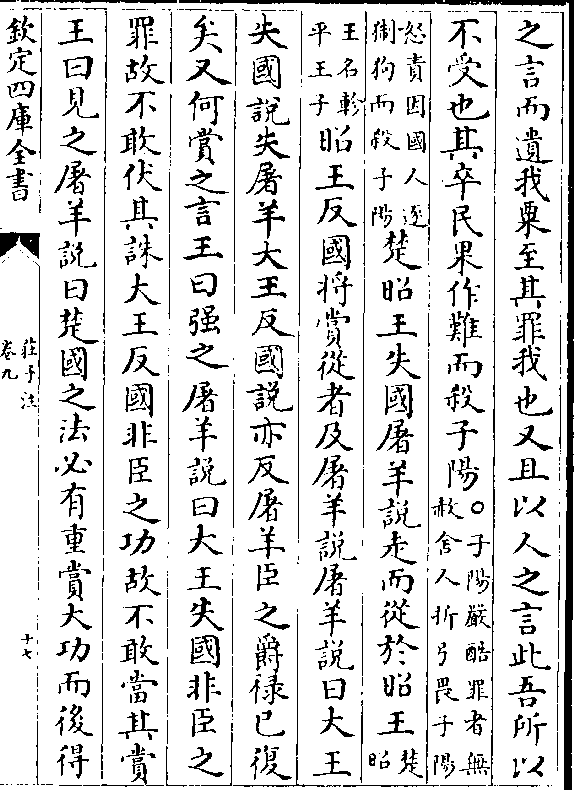 之言而遺我粟至其罪我也又且以人之言此吾所以
不受也其卒民果作難而殺子陽○子陽嚴酷罪者無
赦舍人折弓畏子陽
怒責因國人逐
猘狗而殺子陽楚昭王失國屠羊說走而從於昭王楚
昭
王名軫
平王子昭王反國將賞從者及屠羊說屠羊說曰大王
失國說失屠羊大王反國說亦反屠羊臣之爵祿已復
矣又何賞之言王曰强之屠羊說曰大王失國非臣之
罪故不敢伏其誅大王反國非臣之功故不敢當其賞
王曰見之屠羊說曰楚國之法必有重賞大功而後得
欽定四庫全書
莊子注
卷九
十七